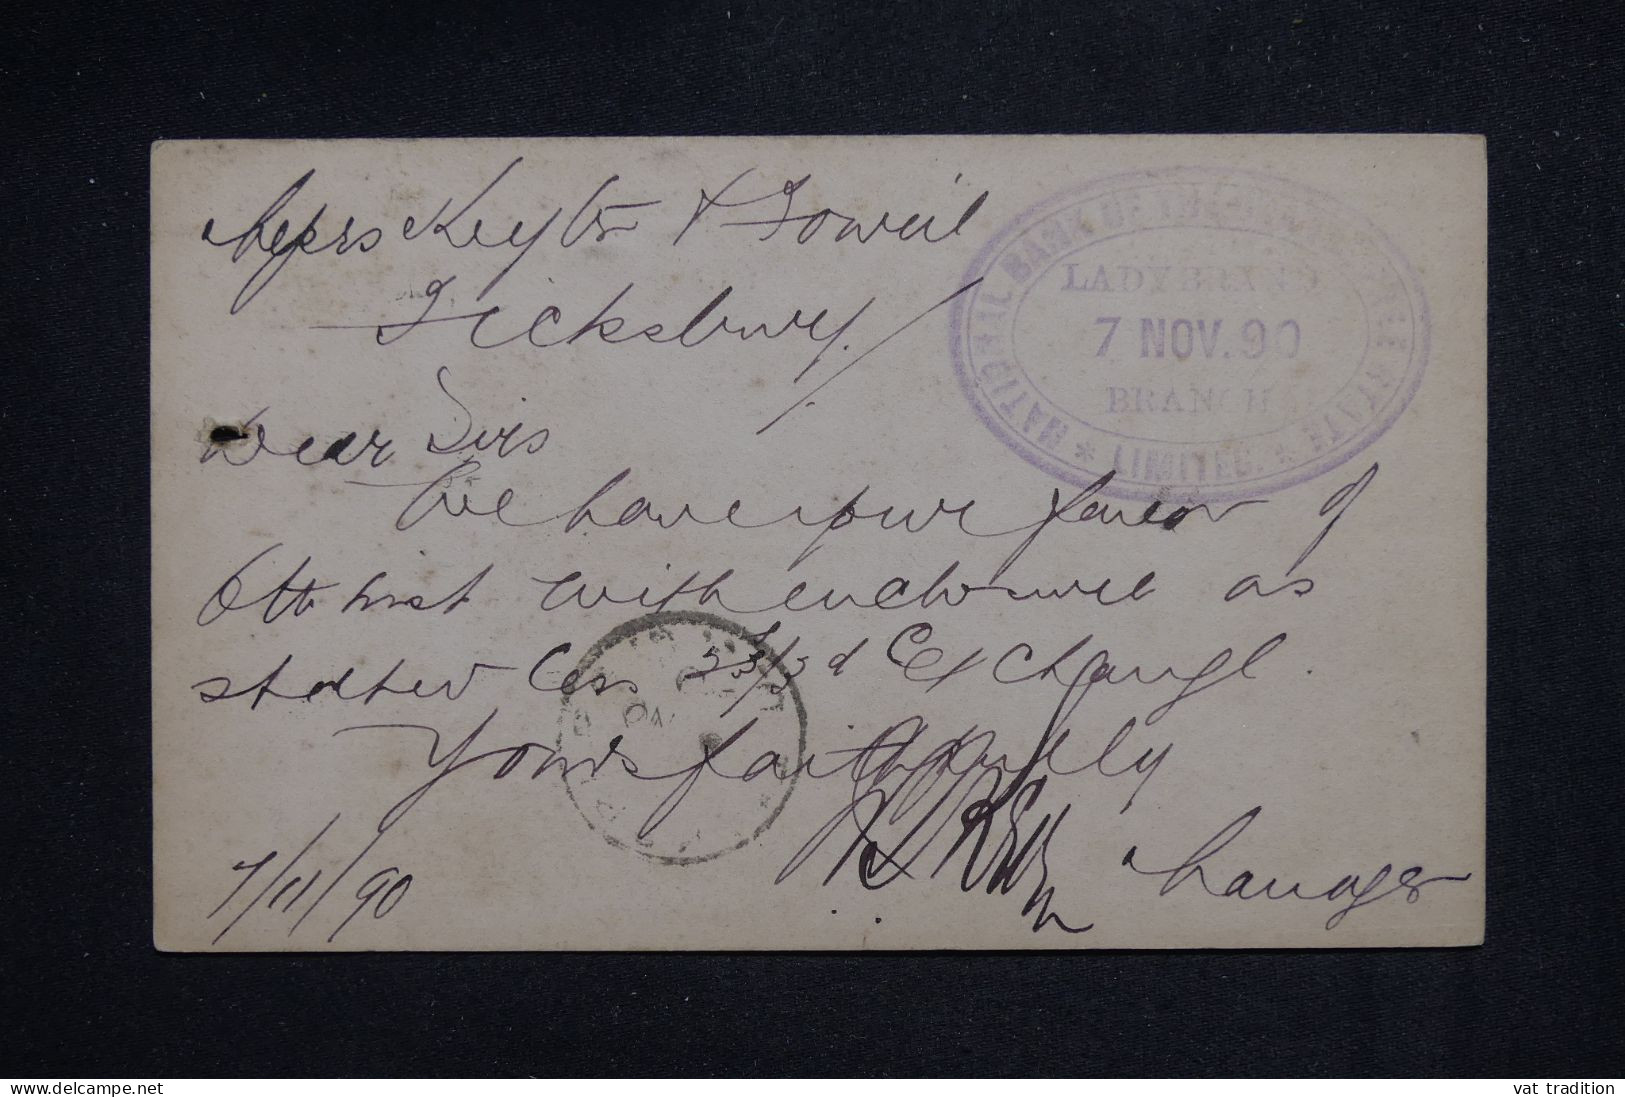 Messrs Keyter & Fowell
Ficksburg.
NATIONAL BANK OF THE ORANGE FREE STATE
LADYBRAND
7 NOV. 90
BRANCH
* LIMITED. *
Dear Sirs
We have your favor of
6th inst with enclosures as
stated less 3/3d Exchange.
Yours faithfully
Manager
7/11/90
vat tradition